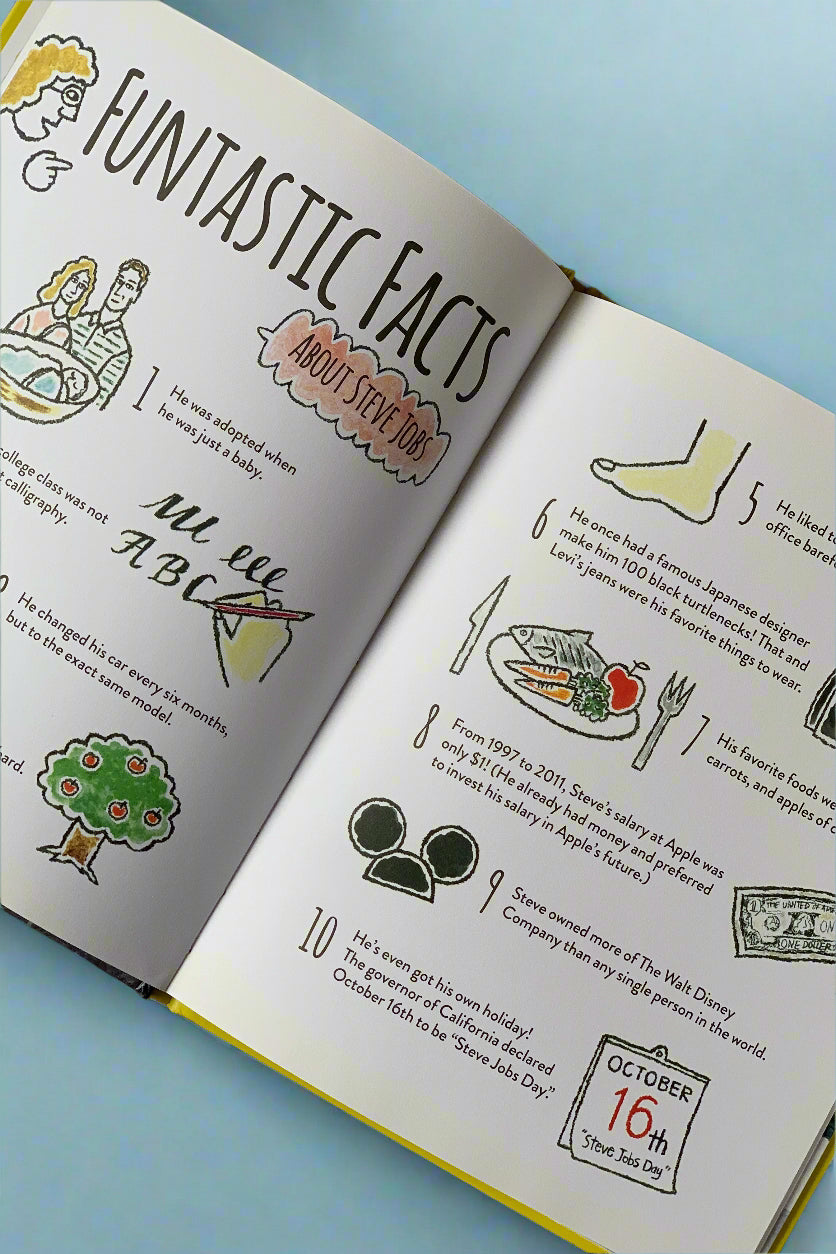 FUNTASTIC FACTS
ABOUT STEVE JOBS
1 He was adopted when
he was just a baby.
college class was not
calligraphy.
ABC
He changed his car every six months,
but to the exact same model.
5 He liked
office
6 He once had a famous Japanese designer
make him 100 black turtlenecks! That and
Levi's jeans were his favorite things to wear.
7 His favorite foods
carrots, and apples of
8 From 1997 to 2011, Steve's salary at Apple was
only $1! (He already had money and preferred
to invest his salary in Apple's future.)
THE UNITED
ONE DOLLAR
9 Steve owned more of The Walt Disney
Company than any single person in the world.
10 He's even got his own holiday!
The governor of California declared
October 16th to be “Steve Jobs Day.”
OCTOBER
16th
"Steve Jobs Day"